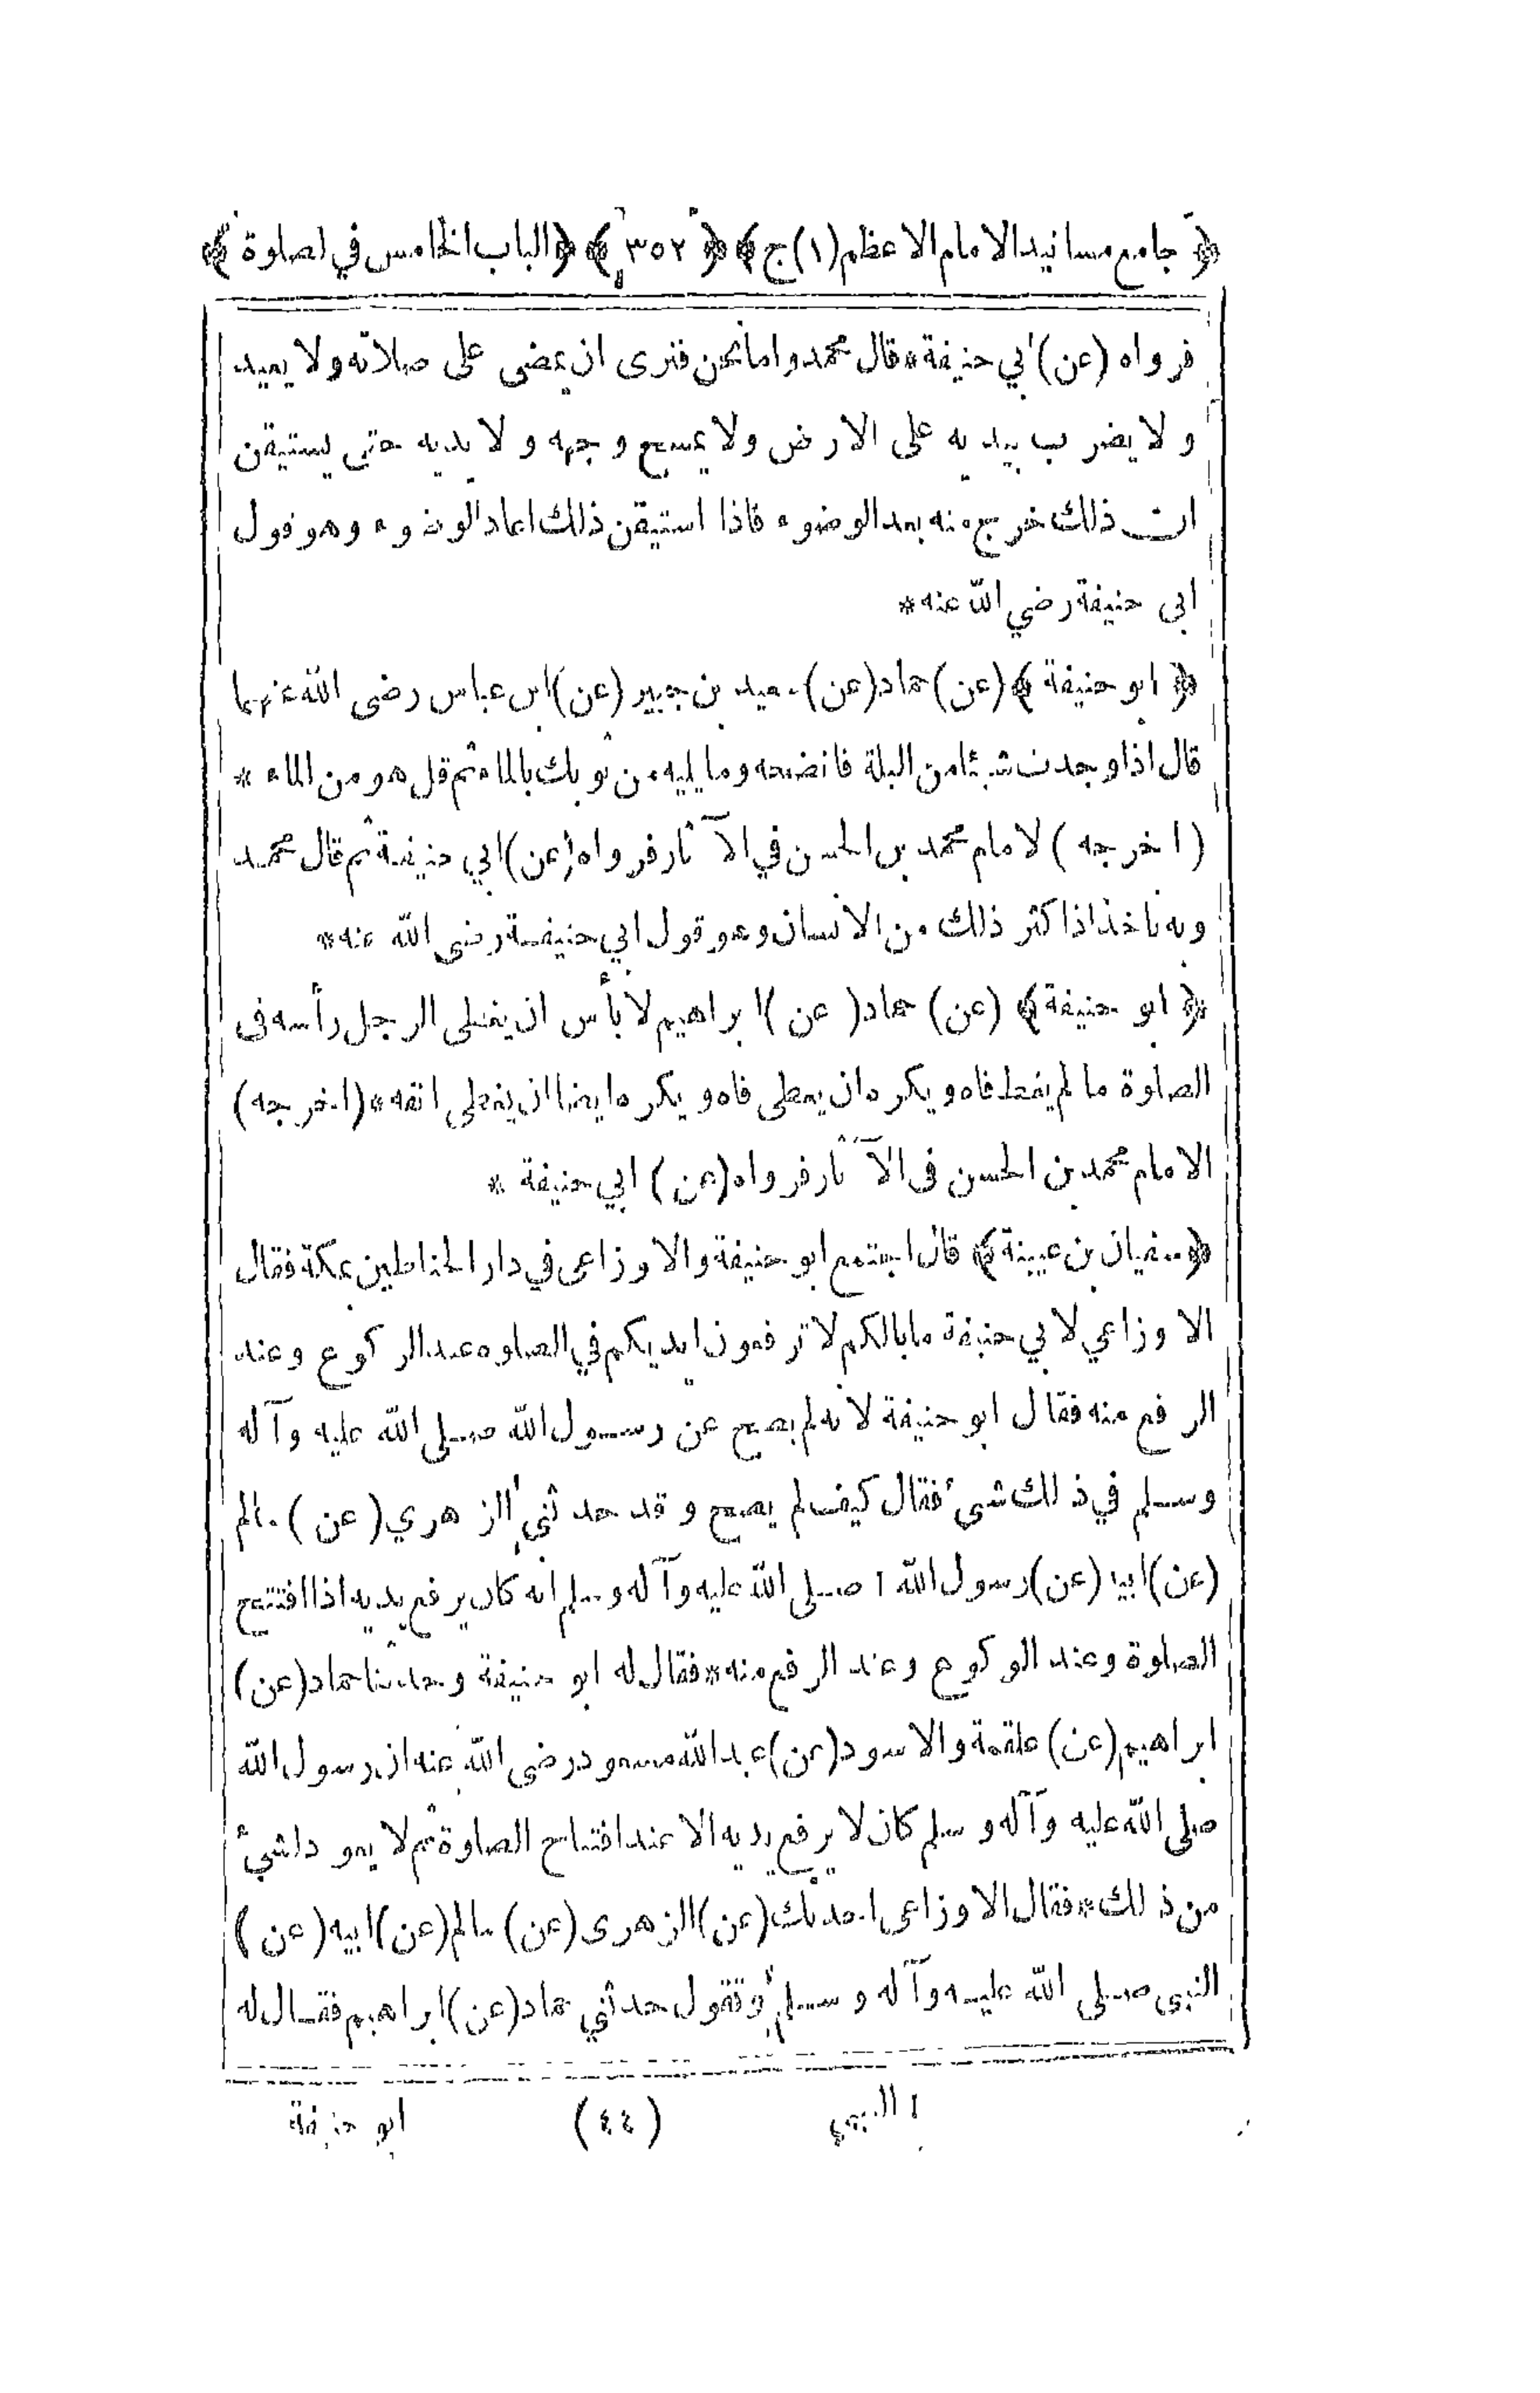 ﴿ جامع مسانيد الامام الاعظم (١) ج ﴾ ﴿ ٣٥٢ ﴾ ﴿ الباب الخامس في لصلوة ﴾
فرواه (عن) ابي حنيفة * قال محمد واما نحن فنرى ان يمضى على صلاته ولا يعيد
ولا يضرب بيديه على الارض ولا يمسح وجهه ولا يديه حتى يستيقن
ان ذلك خرج منه بعد الوضوء فاذا استيقن ذلك اعاد الوضوء وهو قول
ابى حنيفة رضي الله عنه *
﴿ ابو حنيفة ﴾ (عن) حماد (عن) سعيد بن جبير (عن) ابن عباس رضى الله عنهما
قال اذا وجدت شيئا من البلة فانضحه وما يليه من ثوبك بالماء ثم قل هو من الماء *
(اخرجه) لامام محمد بن الحسن في الآثار فرواه (عن) ابي حنيفة ثم قال محمد
وبه ناخذ اذا كثر ذلك من الانسان وهو قول ابي حنيفة رضى الله عنه *
﴿ ابو حنيفة ﴾ (عن) حماد (عن) ابراهيم لا بأس ان يغطى الرجل رأسه فى
الصلوة ما لم يغط فاه ويكره ان يغطى فاه ويكره ايضا ان يغطى انفه * (اخرجه)
الامام محمد بن الحسن فى الآثار فرواه (عن) ابي حنيفة *
﴿ سفيان بن عيينة ﴾ قال اجتمع ابو حنيفة والاوزاعى في دار الحناطين بمكة فقال
الاوزاعي لابي حنيفة ما بالكم لا ترفعون ايديكم في الصلوة عند الركوع وعند
الرفع منه فقال ابو حنيفة لانه لم يصح عن رسول الله صلى الله عليه وآله
وسلم في ذلك شىء فقال كيف لم يصح وقد حدثني الزهري (عن) سالم
(عن) ابيه (عن) رسول الله ١ صلى الله عليه وآله وسلم انه كان يرفع يديه اذا افتتح
الصلوة وعند الركوع وعند الرفع منه * فقال له ابو حنيفة وحدثنا حماد (عن)
ابراهيم (عن) علقمة والاسود (عن) عبد الله مسعود رضى الله عنه ان رسول الله
صلى الله عليه وآله وسلم كان لا يرفع يديه الا عند افتتاح الصلوة ثم لا يعود لشيء
من ذلك * فقال الاوزاعى احدثك (عن) الزهرى (عن) سالم (عن) ابيه (عن)
النبى صلى الله عليه وآله وسلم وتقول حدثني حماد (عن) ابراهيم فقال له
١ النبي (٤٤) ابو حنيفة